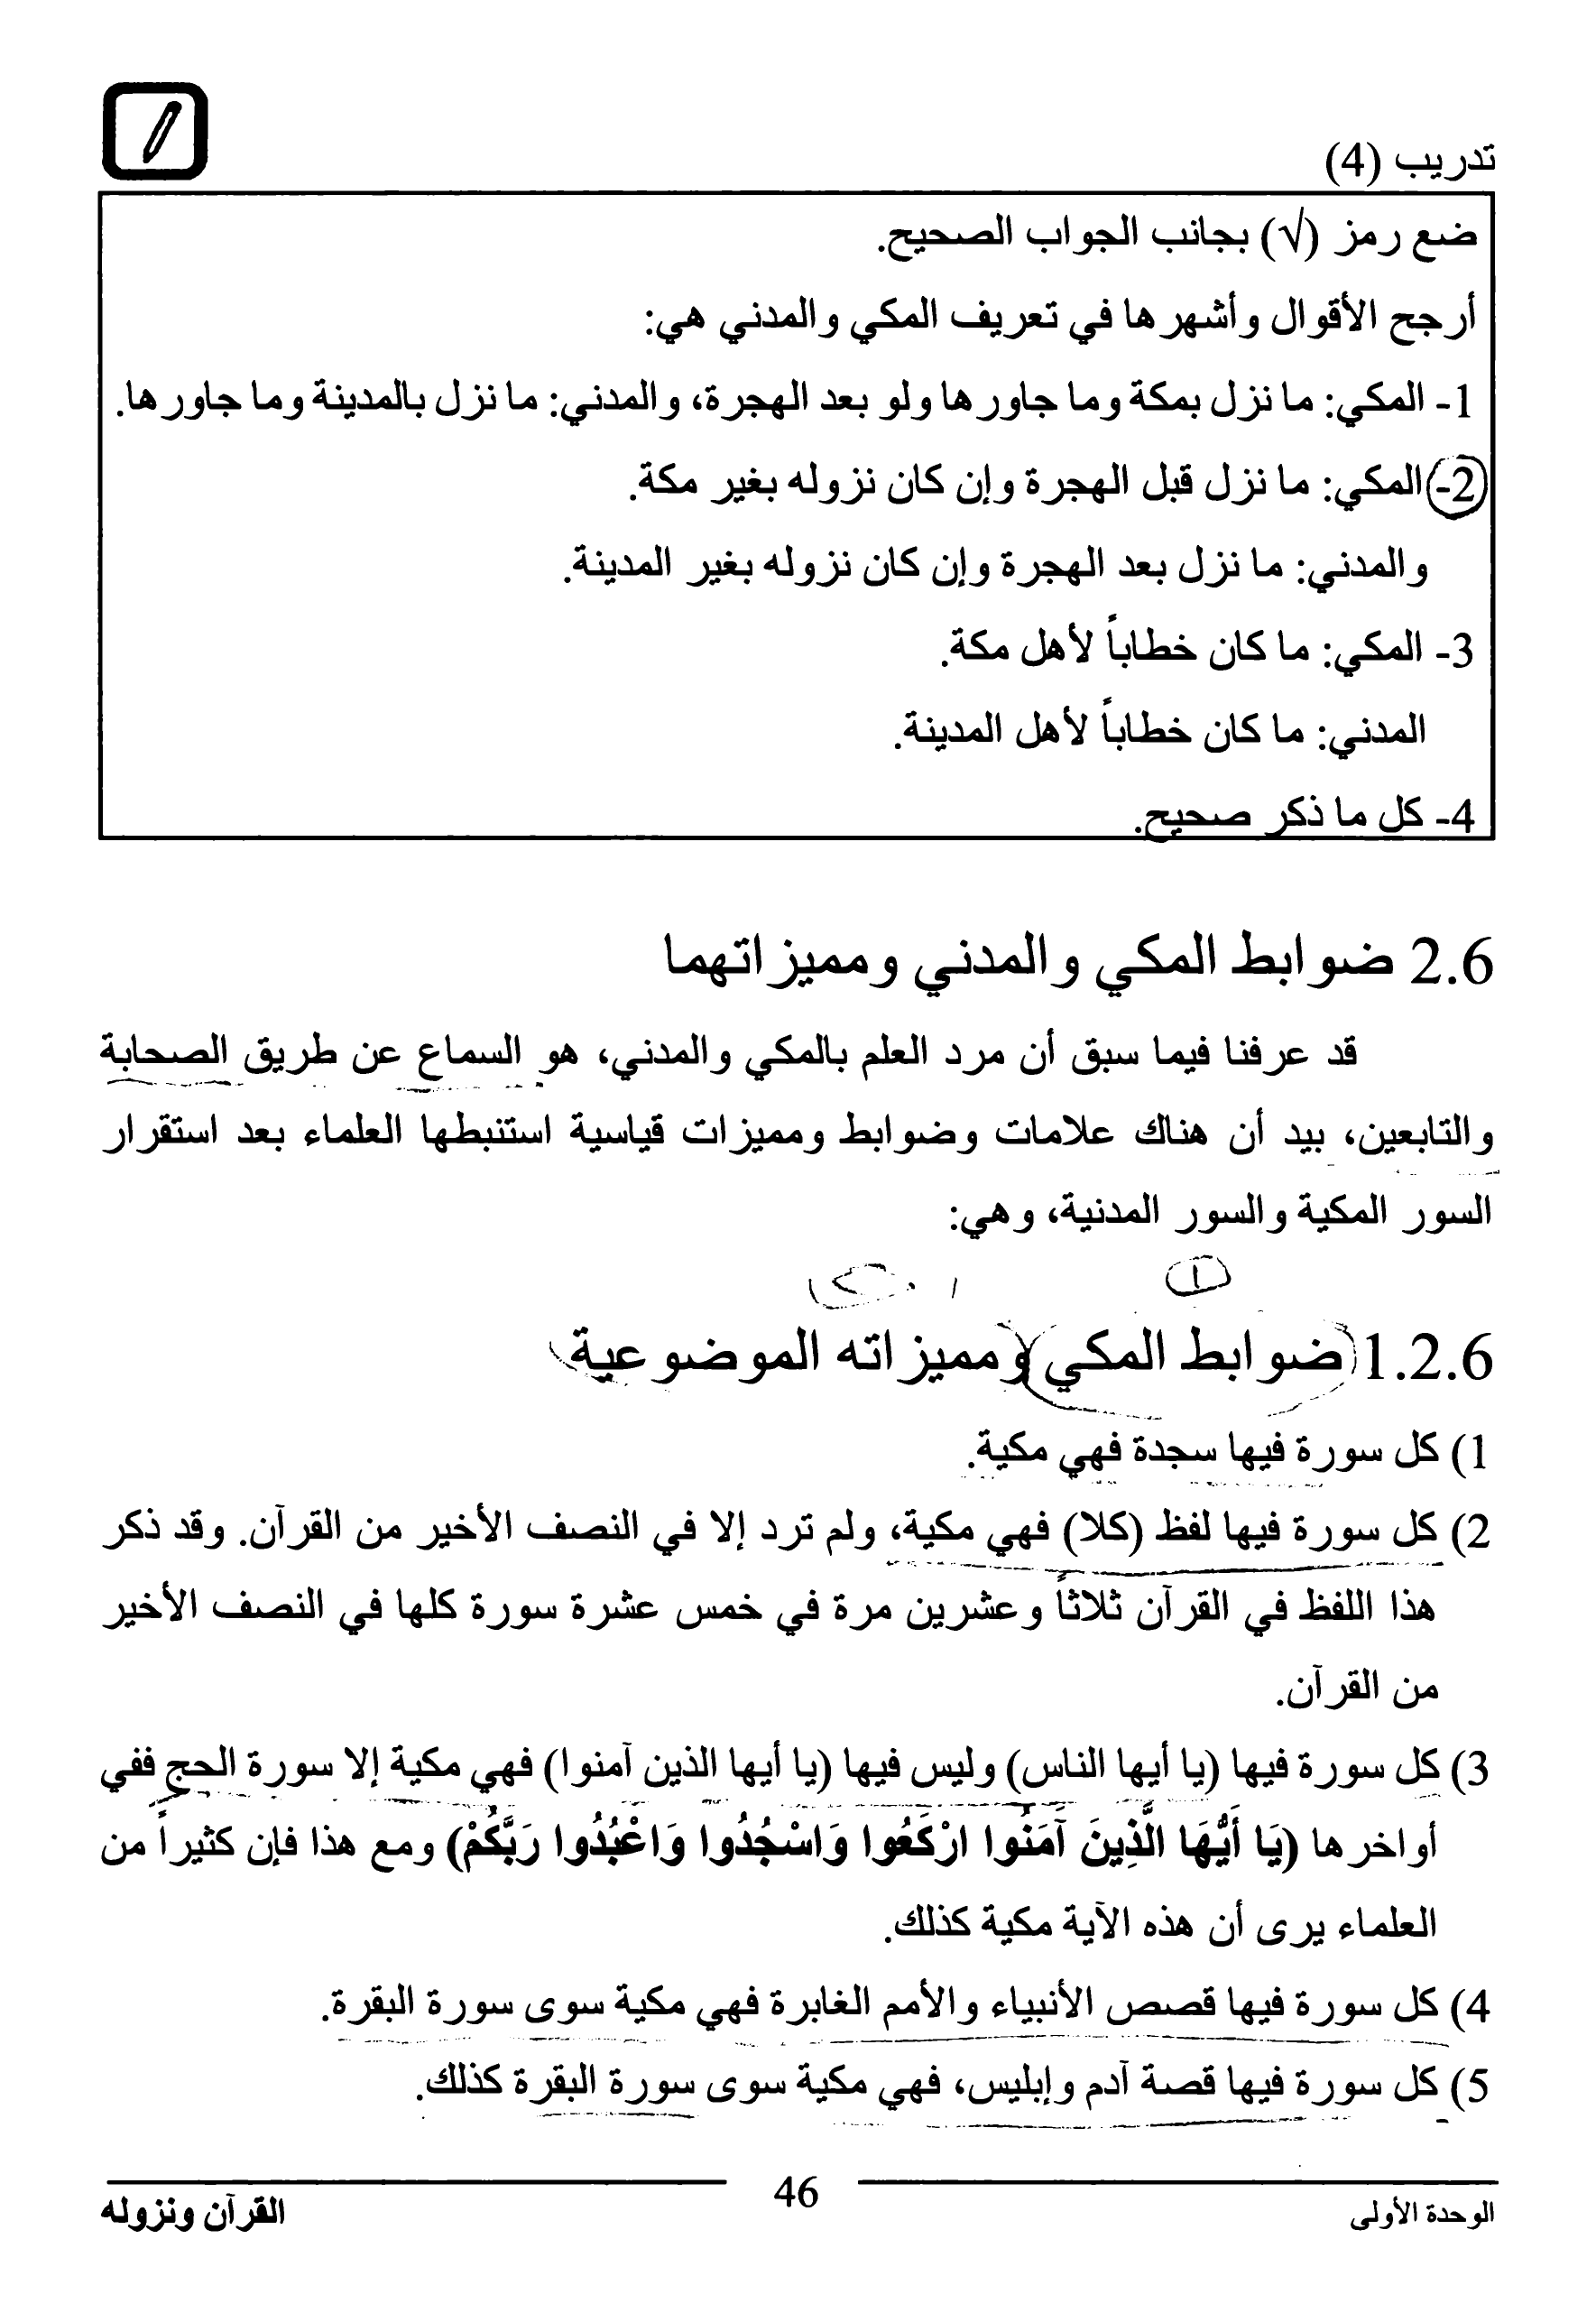 تدريب (4)
ضع رمز (√) بجانب الجواب الصحيح.
أرجح الأقوال وأشهرها في تعريف المكي والمدني هي:
1- المكي: ما نزل بمكة وما جاورها ولو بعد الهجرة، والمدني: ما نزل بالمدينة وما جاورها.
2- المكي: ما نزل قبل الهجرة وإن كان نزوله بغير مكة.
والمدني: ما نزل بعد الهجرة وإن كان نزوله بغير المدينة.
3- المكي: ما كان خطاباً لأهل مكة.
المدني: ما كان خطاباً لأهل المدينة.
4- كل ما ذكر صحيح.
2.6 ضوابط المكي والمدني ومميزاتهما
قد عرفنا فيما سبق أن مرد العلم بالمكي والمدني، هو السماع عن طريق الصحابة
والتابعين، بيد أن هناك علامات وضوابط ومميزات قياسية استنبطها العلماء بعد استقرار
السور المكية والسور المدنية، وهي:
1.2.6 ضوابط المكي ومميزاته الموضوعية
1) كل سورة فيها سجدة فهي مكية.
2) كل سورة فيها لفظ (كلا) فهي مكية، ولم ترد إلا في النصف الأخير من القرآن. وقد ذكر
هذا اللفظ في القرآن ثلاثاً وعشرين مرة في خمس عشرة سورة كلها في النصف الأخير
من القرآن.
3) كل سورة فيها (يا أيها الناس) وليس فيها (يا أيها الذين آمنوا) فهي مكية إلا سورة الحج ففي
أواخرها (يَا أَيُّهَا الَّذِينَ آمَنُوا ارْكَعُوا وَاسْجُدُوا وَاعْبُدُوا رَبَّكُمْ) ومع هذا فإن كثيراً من
العلماء يرى أن هذه الآية مكية كذلك.
4) كل سورة فيها قصص الأنبياء والأمم الغابرة فهي مكية سوى سورة البقرة.
5) كل سورة فيها قصة آدم وإبليس، فهي مكية سوى سورة البقرة كذلك.
الوحدة الأولى
46
القرآن ونزوله